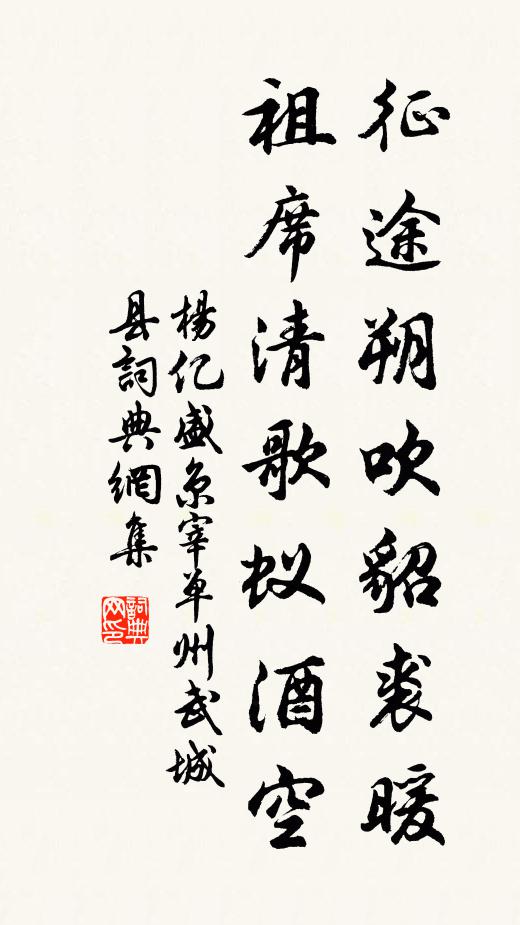 征途朔吹貂裘暖
祖席清歌蚁酒空
楊亿盛京宰单州武城
县詞典網集
詞典网印